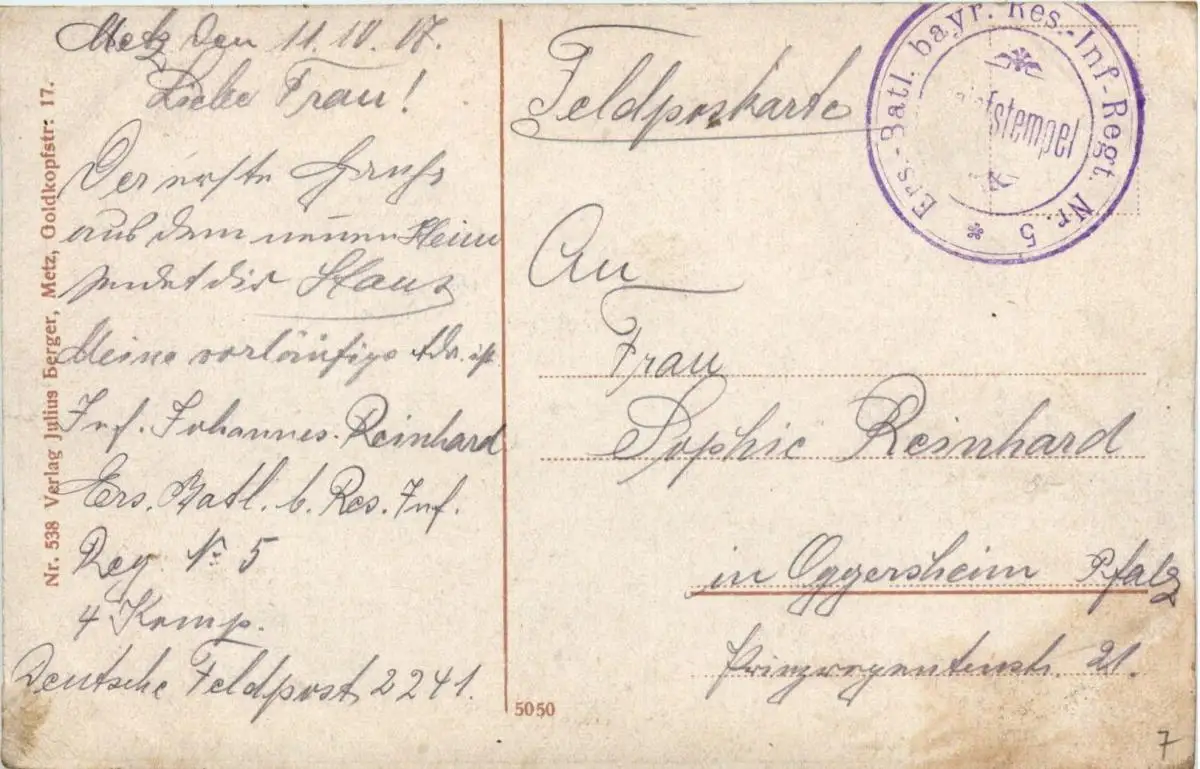 Metz den 11. IV. 17.
Liebe Frau!
Der erste Gruß
aus dem neuen Heim
sendet dir Hans
Meine vorläufige Adr. ist
Inf. Johannes Reinhard
Ers. Batl. b. Res. Inf.
Reg. No 5
4 Komp.
Deutsche Feldpost 2241.
Nr. 538 Verlag Julius Berger, Metz, Goldkopfstr: 17.
5050
Feldpostkarte
Ers.-Batl. bayr. Res.-Inf-Regt. Nr. 5
Briefstempel
An
Frau
Sophie Reinhard
in Oggersheim Pfalz
Prinzregentenstr. 21.
7